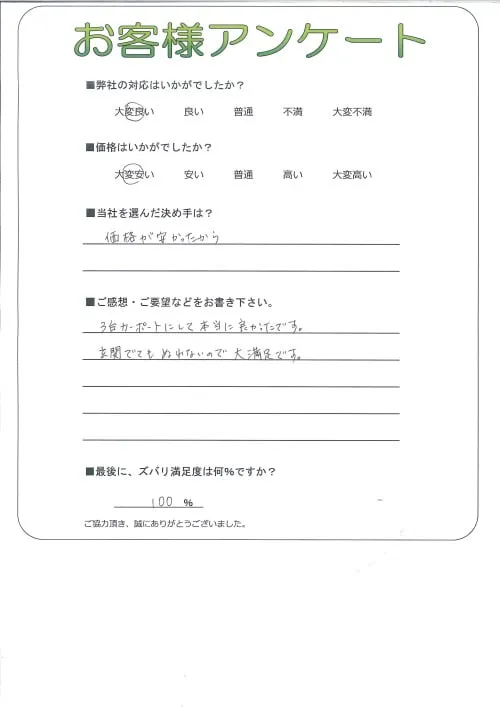 お客様アンケート
■弊社の対応はいかがでしたか？
大変良い 良い 普通 不満 大変不満
■価格はいかがでしたか？
大変安い 安い 普通 高い 大変高い
■当社を選んだ決め手は？
価格が安かったから
■ご感想・ご要望などをお書き下さい。
3台カーポートにして本当に良かったです。
玄関でてもぬれないので大満足です。
■最後に、ズバリ満足度は何％ですか？
100 %
ご協力頂き、誠にありがとうございました。